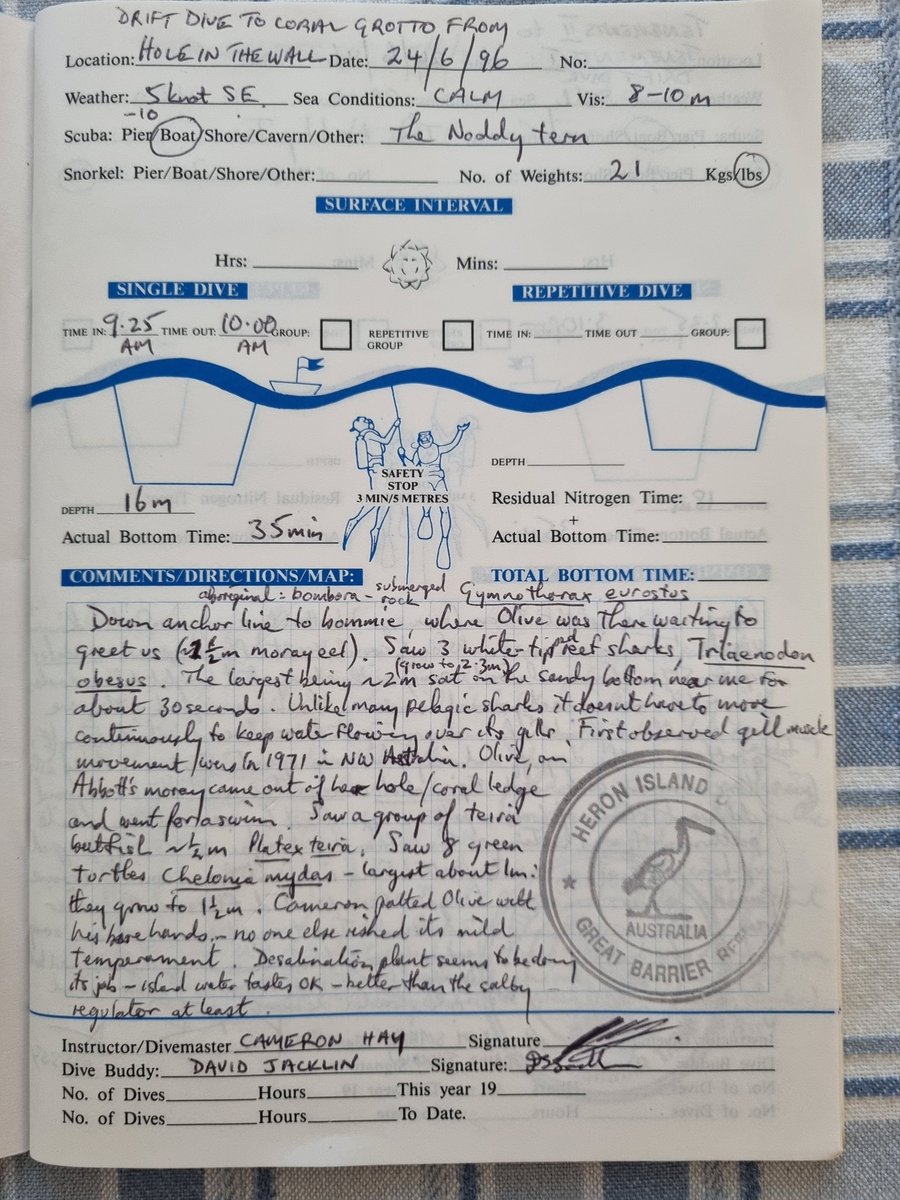 DRIFT DIVE TO CORAL GROTTO FROM
Location: HOLE IN THE WALL Date: 24/6/96 No:
Weather: 5 knot SE Sea Conditions: CALM Vis: 8-10m
-10
Scuba: Pier/Boat/Shore/Cavern/Other: The Noddy tern
Snorkel: Pier/Boat/Shore/Other: No. of Weights: 21 Kgs/lbs
SURFACE INTERVAL
Hrs: Mins:
SINGLE DIVE REPETITIVE DIVE
TIME IN: 9.25 AM TIME OUT: 10.00 AM GROUP: REPETITIVE GROUP TIME IN: TIME OUT GROUP:
SAFETY
STOP
3 MIN/5 METRES
DEPTH 16m
Actual Bottom Time: 35min
DEPTH
Residual Nitrogen Time:
+
Actual Bottom Time:
COMMENTS/DIRECTIONS/MAP: TOTAL BOTTOM TIME:
aboriginal: bombora - submerged rock Gymnothorax eurostus
Down anchor line to bommie, where Olive was there waiting to
greet us (~1½m moray eel). Saw 3 white-tipped reef sharks, Triaenodon
(grow to 2.3m)
obesus. The largest being ~2m sat on the sandy bottom near me for
about 30 seconds. Unlike many pelagic sharks it doesnt have to move
continuously to keep water flowing over its gills. First observed gill muscle
movement in 1971 in NW Olive, an
Abbott's moray came out of her hole/coral ledge
and went for a swim. Saw a group of teira
batfish ~½m Platex teira. Saw 8 green
turtles Chelonia mydas - largest about 1m:
they grow to 1½m. Cameron patted Olive with
his bare hands - no one else risked its mild
temperament. Desalination plant seems to be doing
its job - island water tastes OK - better than the salty
regulator at least.
HERON ISLAND
AUSTRALIA
GREAT BARRIER REEF
Instructor/Divemaster CAMERON HAY Signature
Dive Buddy: DAVID JACKLIN Signature:
No. of Dives Hours This year 19
No. of Dives Hours To Date.